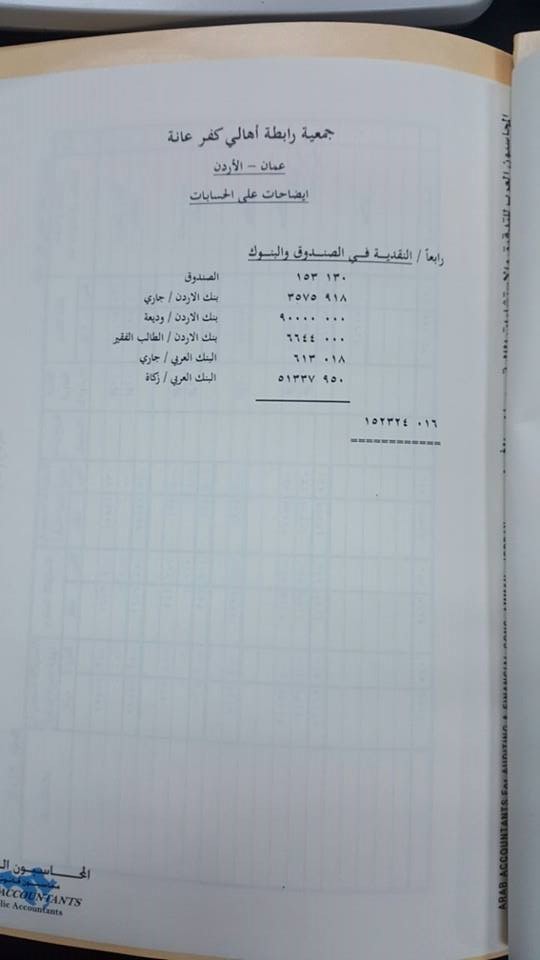 جمعية رابطة أهالي كفر عانة
عمان - الأردن
ايضاحات على الحسابات
رابعاً / النقدية في الصندوق والبنوك
١٥٣ ١٣٠ الصندوق
٣٥٧٥ ٩١٨ بنك الاردن / جاري
٩٠٠٠٠ ٠٠٠ بنك الاردن / وديعة
٦٦٤٤ ٠٠٠ بنك الاردن / الطالب الفقير
٦١٣ ٠١٨ البنك العربي / جاري
٥١٣٣٧ ٩٥٠ البنك العربي / زكاة
١٥٢٣٢٤ ٠١٦
المحاسبون
ACCOUNTANTS
Accountants
المحاسبون العرب
ARAB ACCOUNTANTS For AUDITING & FINANCIAL CONS. AMMAN JORDAN